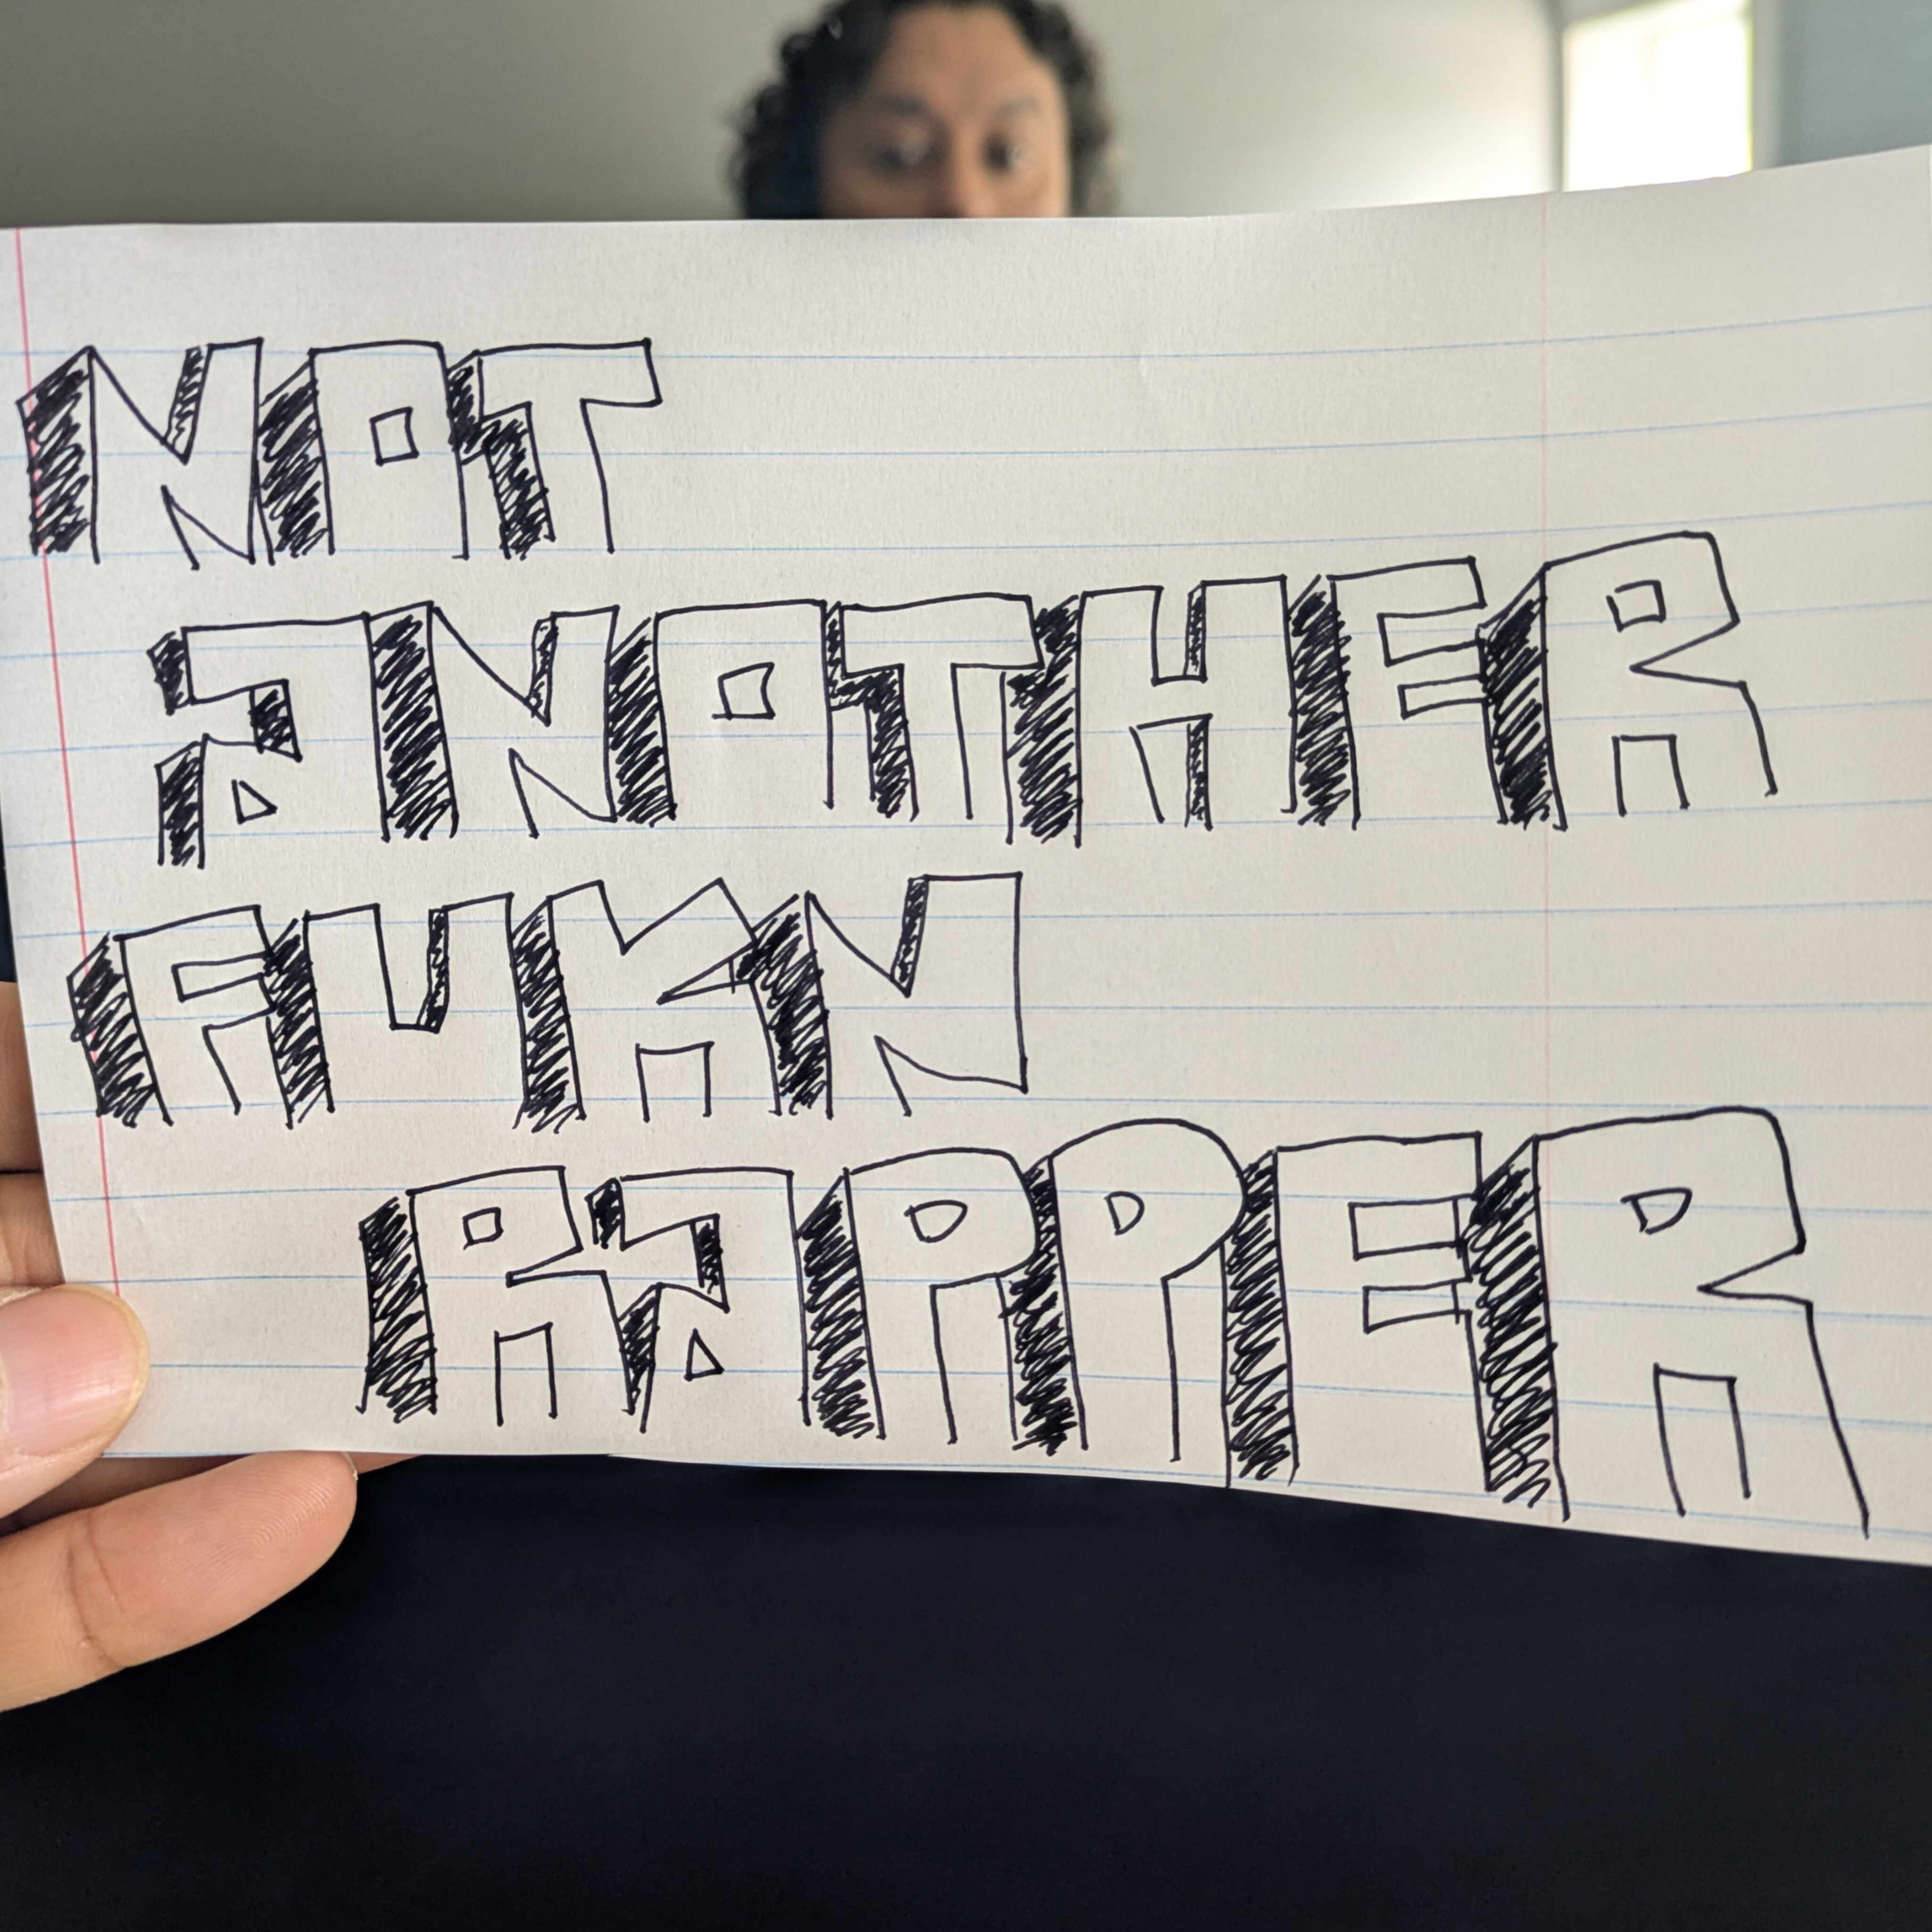 NOT
ANOTHER
FUKN
RAPPER